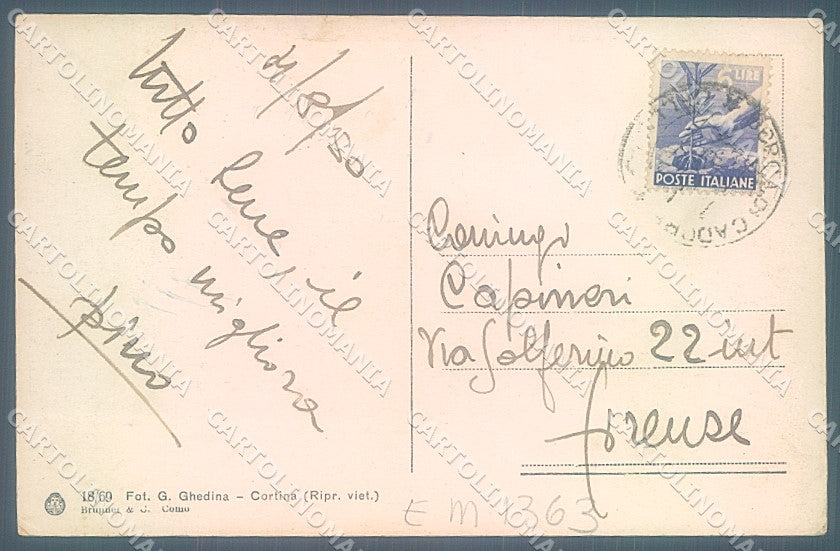 4/8/50
tutto bene, il
tempo migliora
pino
6 LIRE
POSTE ITALIANE
DI CADORE
Capineri
Via Solferino 22 int
Firenze
18/69 Fot. G. Ghedina - Cortina (Ripr. viet.)
Brunner & C. Como
E M 1363
CARTOLINOMANIA